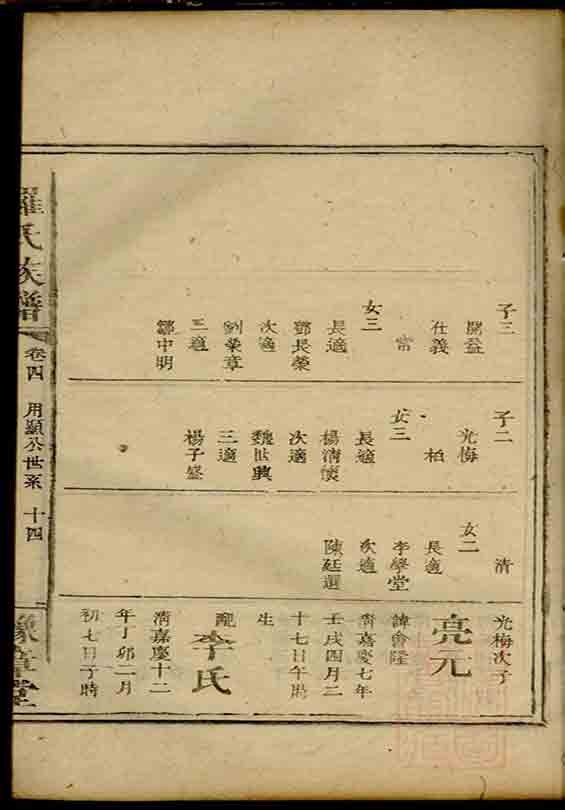 子三
開益
仕義
富
女三
長適
鄧長榮
次適
劉榮章
三適
鄒中明
子二
光梅
柏
女三
長適
楊清懷
次適
魏世興
三適
楊子盛
清
女二
長適
李學堂
次適
陳廷選
光梅次子
亮元
諱會隆
清嘉慶七年
壬戌四月二
十七日午時
生
配
李氏
清嘉慶十二
年丁卯二月
初七日子時
羅氏族譜
卷四
用顯公世系
十四
豫章堂